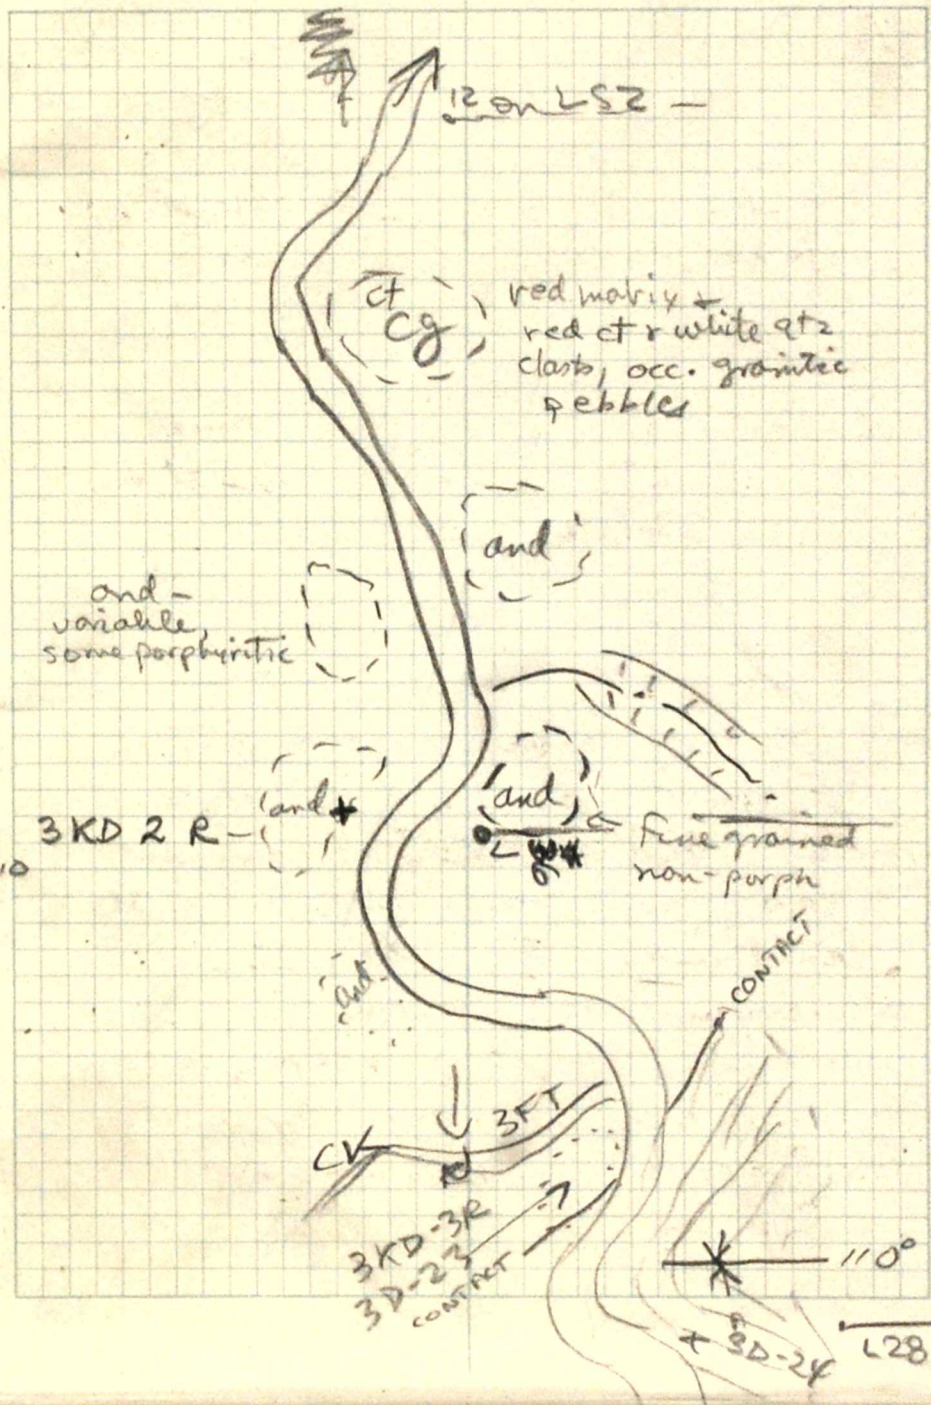 12 on LSZ —
ct
cg
red matrix +
red ct + white qtz
clasts, occ. granitic
pebbles
and
and –
variable,
some porphyritic
and
and
3KD 2 R –
L
Fine grained
non-porph
10
and
CONTACT
3FT
CV
3KD-3R
3D-23
CONTACT
110°
x 3D-24
L28